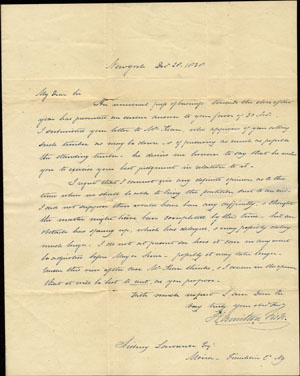 New York Dec 28, 1838
My Dear Sir
An unusual press of business towards the close of the
year has prevented an earlier answer to your favor of 23
I submitted your letter to Mr. who approves of your selling
such timber as may be down, & of preserving as much as possible
the standing timber. he desires me however to say that he wishes
you to exercise your best judgement in relation to it.
I regret that I cannot give any definite opinion as to the
time when we shall be able to bring the matter to
I did not suppose there would have been any difficulty, & thought
the matter might have been completed by this time. but an
obstacle has sprung up, which has delayed, & may possibly delay
much longer. I do not at present see how it can in any event
be adjusted before May or June. possibly it may take longer.
Under this view of the case Mr. thinks, & I concur in the opinion
that it will be best to wait, as you propose.
With much respect I am Dear Sir
Very truly your obt. Svt
Hamilton Fish
Sidney Lawrence Esq
Moira - Franklin Co. NY